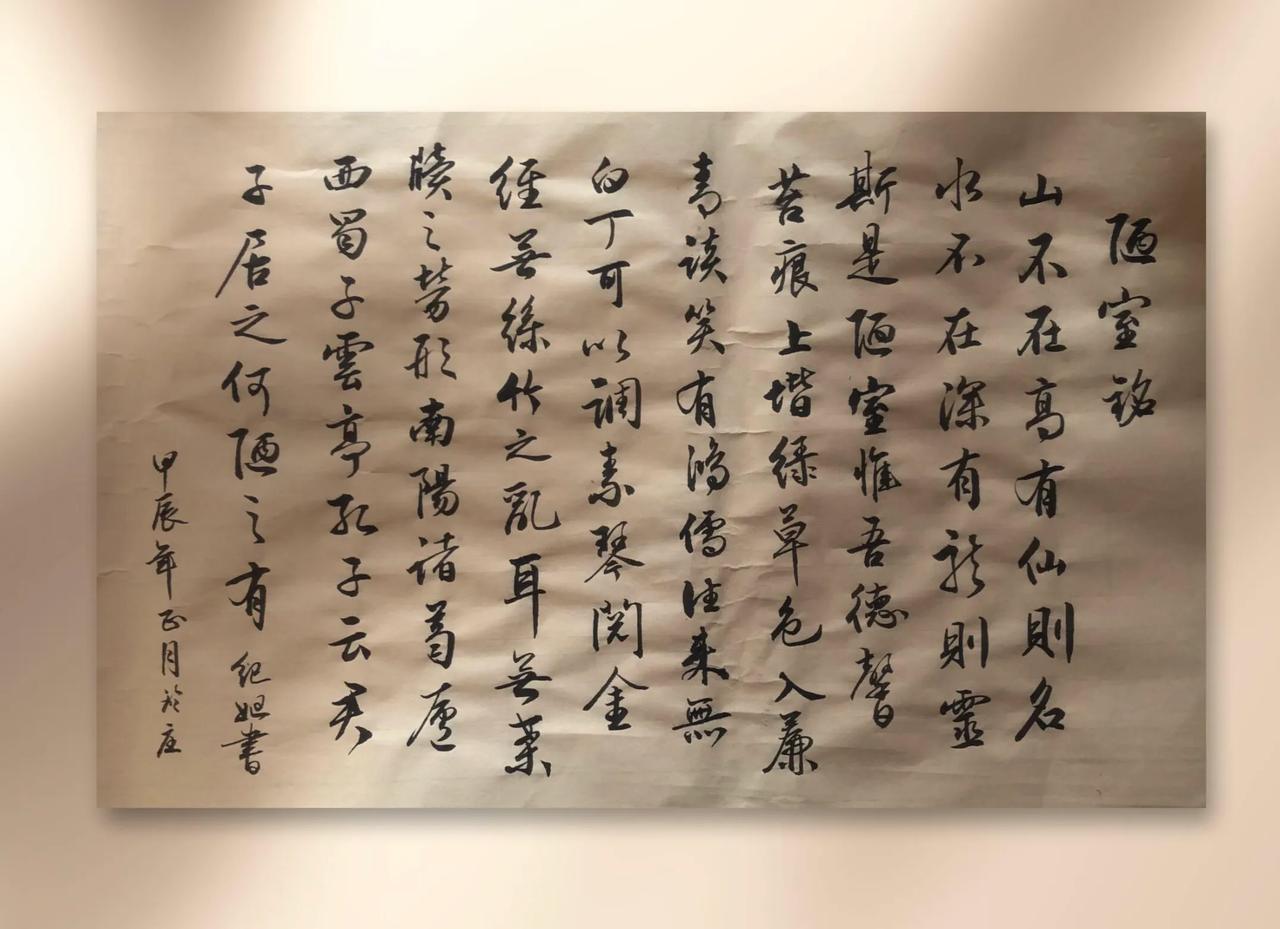 陋室铭
山不在高有仙則名
水不在深有龙則靈
斯是陋室惟吾德馨
苔痕上堦绿草色入薕
青談笑有鴻儒往来無
白丁可以調素琴閱金
経無絲竹之亂耳無案
牘之勞形南陽諸葛廬
西蜀子雲亭孔子云君
子居之何陋之有 紀妲書
甲辰年正月於庄